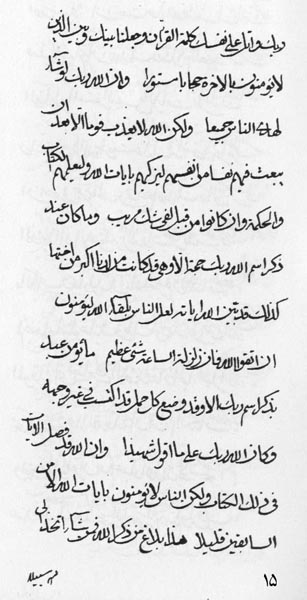 ربك وانا على نفسك كلمة القرآن وجعلنا بينك وبين الذين
لا يومنون بالاخرة حجابا مستورا وان الله ربك لو شاء
لهدى الناس جميعا ولكن الله لا يعذب قوما الا بعد ان
يبعث فيهم نفسا من انفسهم ليزكيهم بايات الله وليعلمهم الكتاب
والحكمة وان كانوا من قبل لفى شك مريب وما كان عند
ذكر اسم الله ربك حجة الا وهو قد كانت من اياتنا اكبر من اختها
كذلك قد بين الله اياته لعل الناس بذكر الله ليومنون
ان اتقوا الله فان زلزلة الساعة شىء عظيم ما تومن عبد
بذكر اسم ربك الا وقد وضع كل حمل قد اكتسب فى غير رحمة
وكان الله ربك على ما اقول شهيدا وان الله قد فصل الايات
فى ذلك الكتاب ولكن الناس لا يومنون بايات الله الا من
السابقين قليلا هذا بلاغ من ذكر الله فمن شاء اتخذ الى
ربه سبيلا
١٥